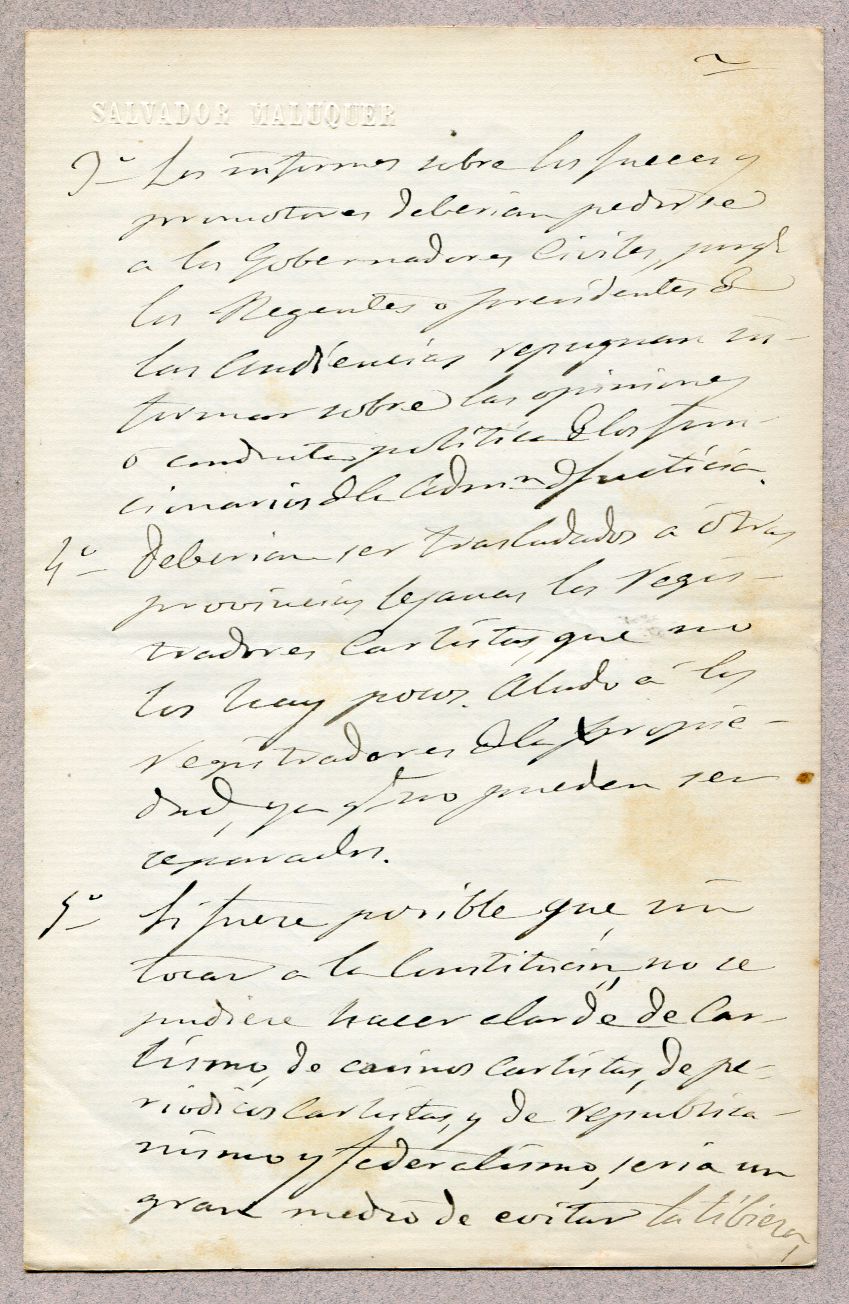 2
SALVADOR MALUQUER
3º Los informes sobre los Jueces y
promotores deberian pedirse
a los Gobernadores Civiles, porqe
los Regentes o presidentes de
las Audiencias repugnan in-
formar sobre las opiniones
ó conducta politica de los fun-
cionarios de la Admon de justicia.
4º Deberian ser trasladados a otras
provincias lejanas los regis-
tradores Carlistas, que no
los hay pocos. Aludo á los
registradores de la propie-
dad, ya qe no pueden ser
separados.
5º Si fuere posible que, sin
tocar a la Constitución, no se
pudiere hacer alarde de Car-
lismo, de casinos Carlistas, de pe-
riodicos Carlistas, y de republica-
nismo y federalismo, seria un
gran medio de evitar la tibieza,